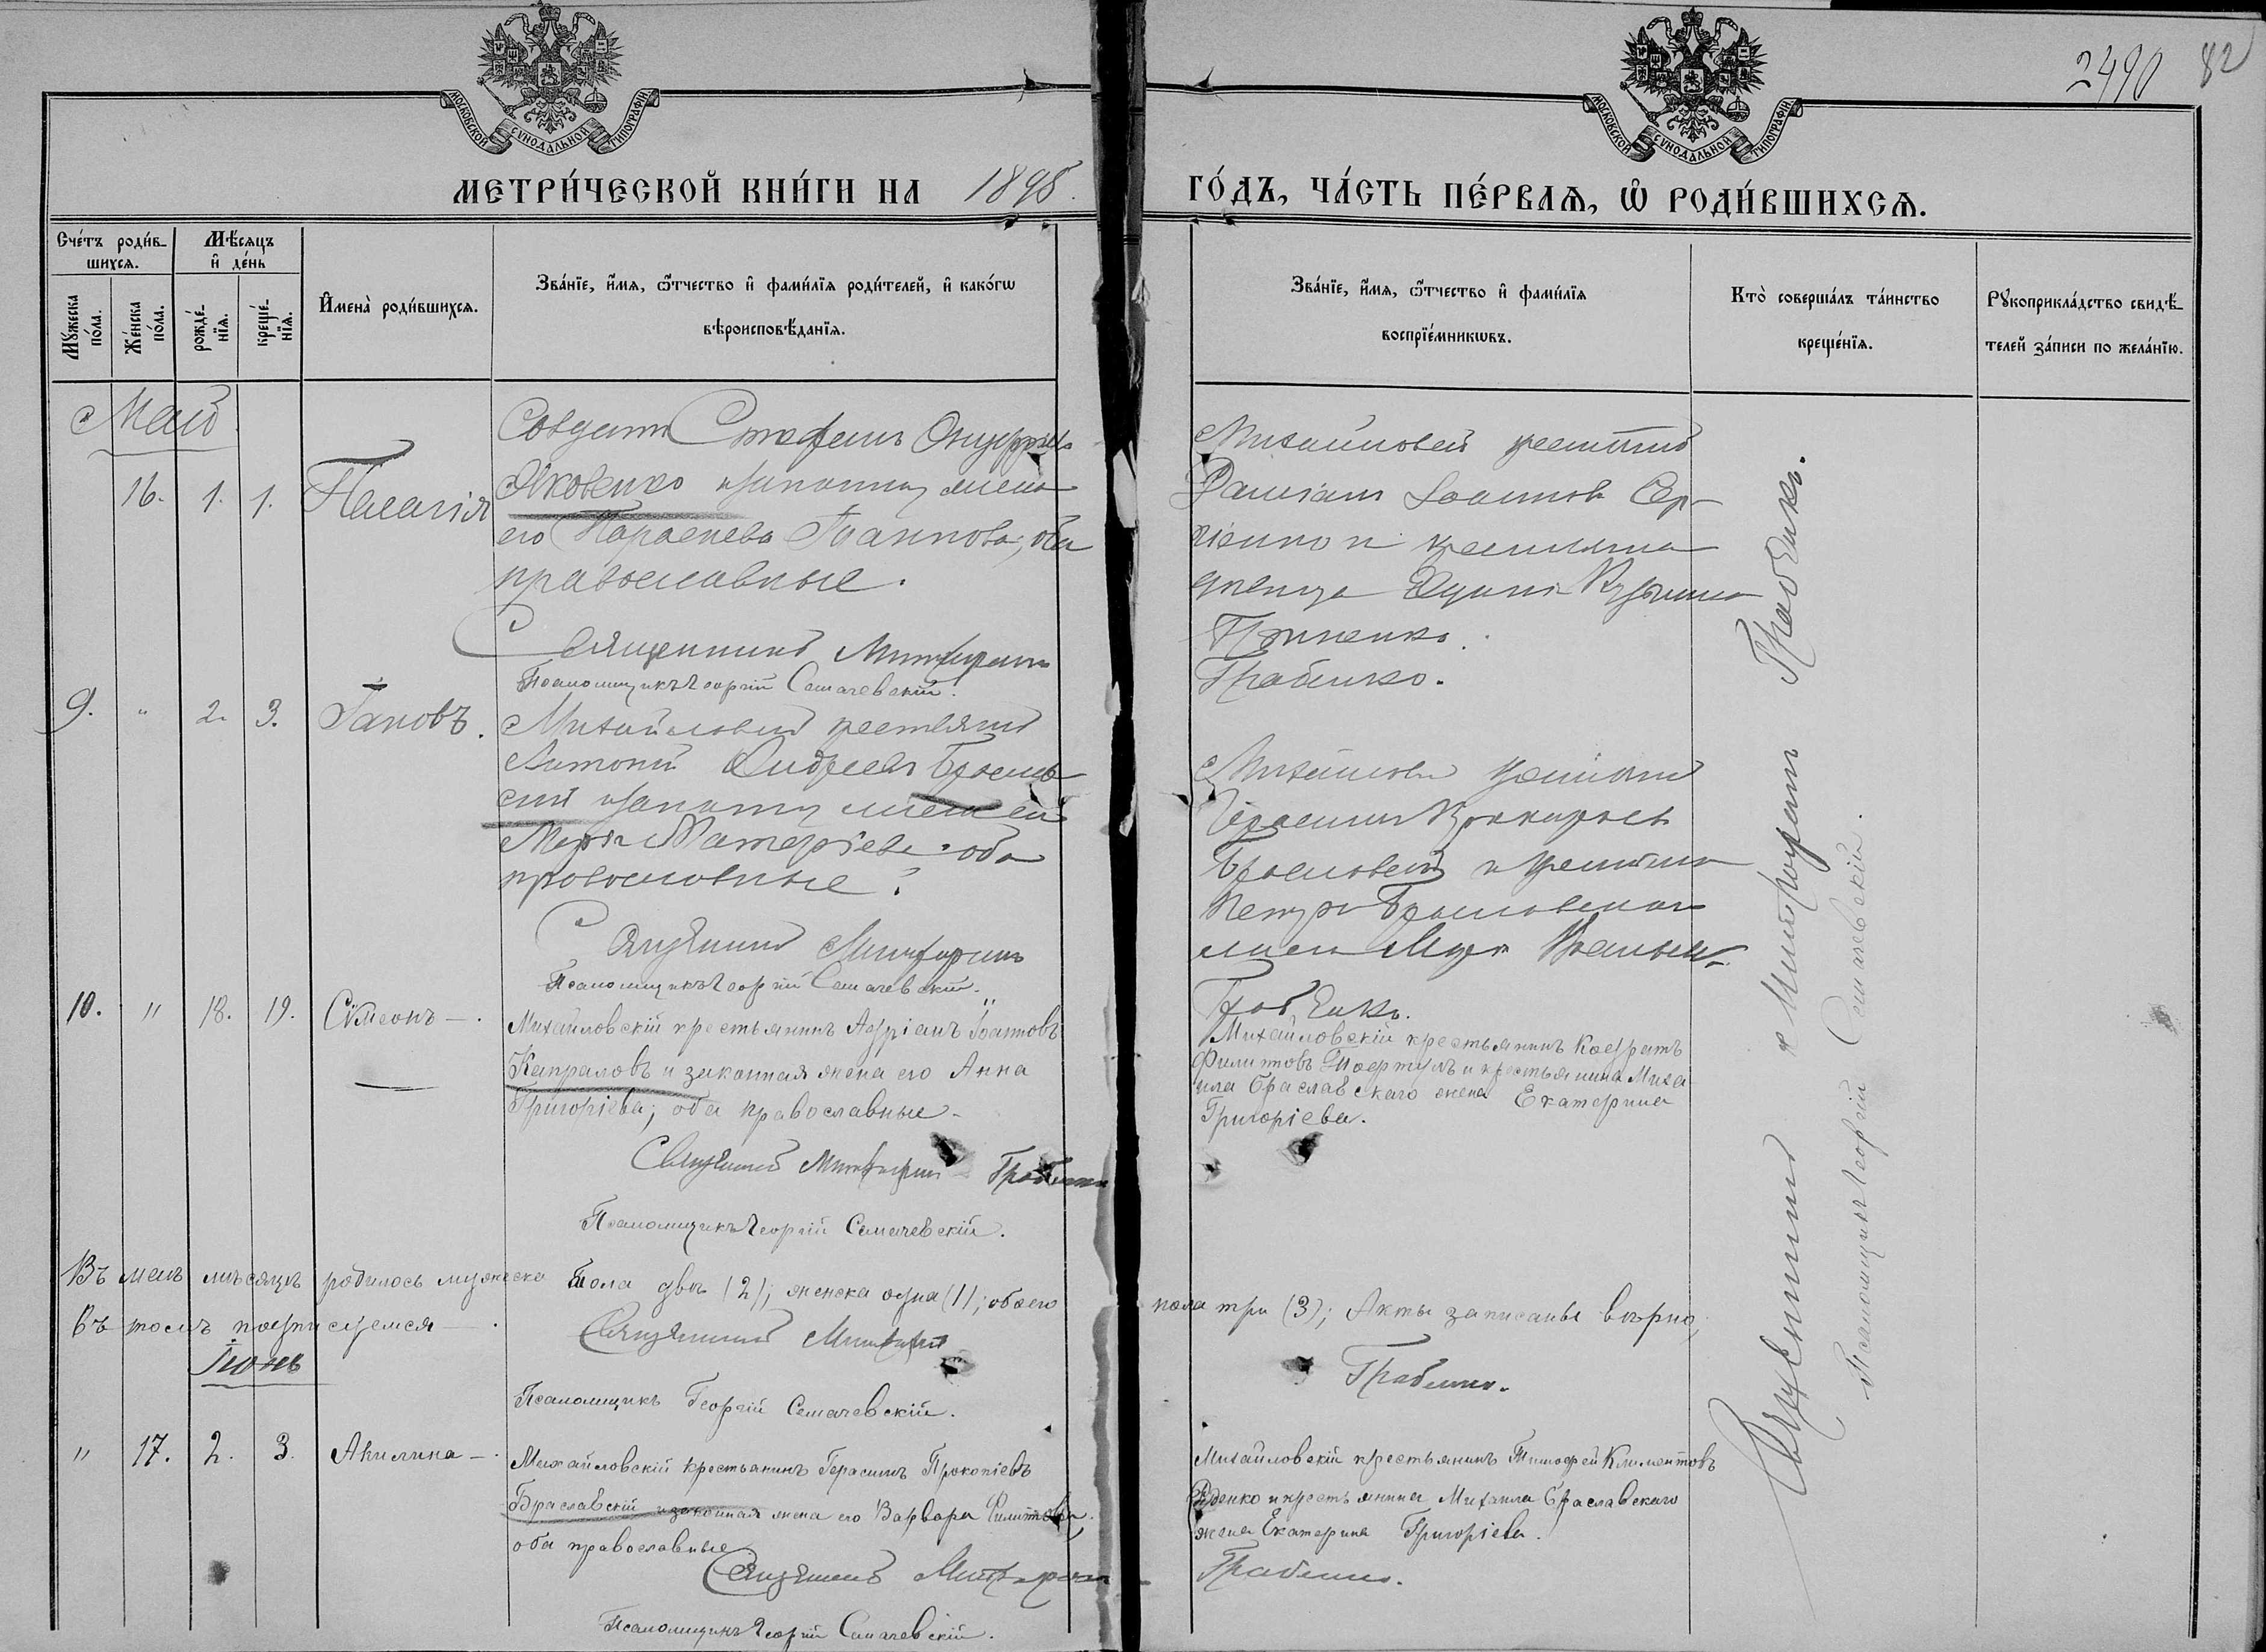 2490 82
МОСКОВСКОЙ СУНОДАЛЬНОЙ ТИПОГРАФІИ
МОСКОВСКОЙ СУНОДАЛЬНОЙ ТИПОГРАФІИ
МЕТРИ́ЧЕСКОЙ КНИ́ГИ НА 1895.
ГО́ДЪ, ЧА́СТЬ ПЕ́РВАѦ, Ѡ҆ РОДИ́ВШИХСѦ.
Сче́тъ роди́в-
шихсѧ.
Мѣ́сѧцъ
и҆ де́нь
Мꙋ́жеска
по́ла.
Же́нска
по́ла.
рожде́-
нїѧ.
креще́-
нїѧ.
И҆мена̀ роди́вшихсѧ.
Зва́нїе, и҆́мѧ, ѻ҆́тчество и҆ фами́лїѧ роди́телей, и҆ како́гѡ
вѣроисповѣ́данїѧ.
Зва́нїе, и҆́мѧ, ѻ҆́тчество и҆ фами́лїѧ
воспрїе́мникѡвъ.
Кто̀ соверша́лъ та́инство
креще́нїѧ.
Рꙋкоприкла́дство свидѣ́-
телей за́писи по жела́нїю.
Май
16. 1. 1. Пелагія
Солдатъ Стефанъ Онуфріевъ
Яковенко и законная жена
его Параскева Іоаннова; оба
православные.
Священникъ Митрофанъ
Псаломщикъ Георгій Семачевскій.
Михайловскій крестьянинъ
Даміанъ Іоанновъ Сер-
Грабенко.
9. " 2. 3. Іаковъ.
Михайловскій крестьянинъ
Антоній Андреевъ Браслав-
скій и законная жена его
Марія оба
православные.
Священникъ Митрофанъ
Псаломщикъ Георгій Семачевскій.
Михайловскій крестьянинъ
Герасимъ Прокопіевъ
Браславскій и крестьянина
Петра Браславскаго
жена
Грабенко.
10. " 18. 19. Сѵмеонъ —.
Михайловскій крестьянинъ Адріанъ Іоанновъ
Капраловъ и законная жена его Анна
Григоріева; оба православные —
Священникъ Митрофанъ Грабенко
Псаломщикъ Георгій Семачевскій.
Михайловскій крестьянинъ Кодратъ
Филиповъ и крестьянина Миха-
ила Браславскаго жена Екатерина
Григоріева.
Въ маѣ мѣсяцѣ родилось мужеска пола два (2); женска одна (1); обоего пола три (3); Акты записаны вѣрно,
въ томъ подписуемся —.
Священникъ Митрофанъ Грабенко.
Псаломщикъ Георгій Семачевскій.
Іюнь
" 17. 2. 3. Акилина —.
Михайловскій крестьянинъ Герасимъ Прокопіевъ
Браславскій и законная жена его Варвара Филипова
оба православные
Священникъ Митрофанъ Грабенко.
Псаломщикъ Георгій Семачевскій.
Михайловскій крестьянинъ Тимофей Климентовъ
и крестьянина Михаила Браславскаго
жена Екатерина Григоріева.
Священникъ Митрофанъ Грабенко.
Псаломщикъ Георгій Семачевскій.